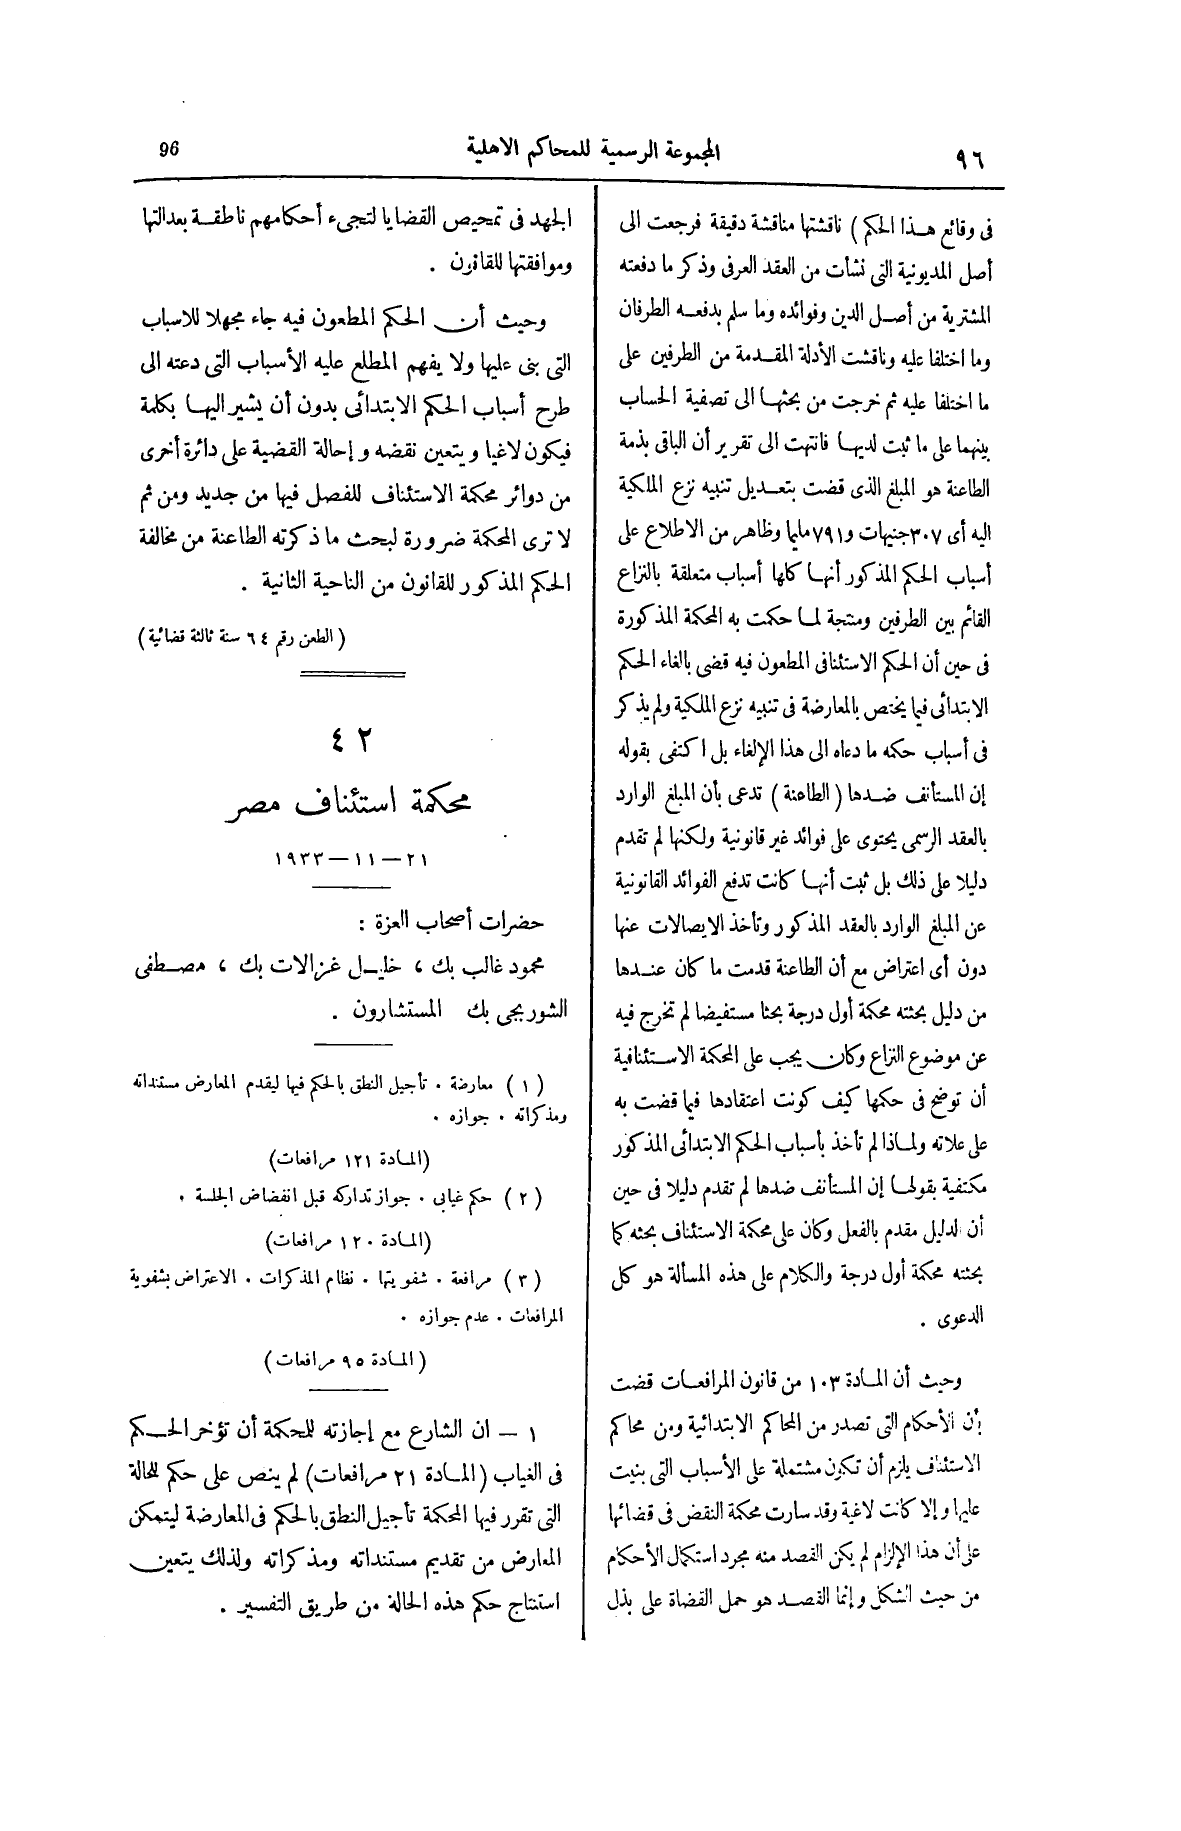 ٩٦
المجموعة الرسمية للمحاكم الاهلية
96
فى وقائع هذا الحكم ) ناقشتها مناقشة دقيقة فرجعت الى
أصل المديونية التى نشأت من العقد العرفى وذكر ما دفعته
المشترية من أصل الدين وفوائده وما سلم بدفعه الطرفان
وما اختلفا عليه وناقشت الأدلة المقدمة من الطرفين على
ما اختلفا عليه ثم خرجت من بحثها الى تصفية الحساب
بينهما على ما ثبت لديها فانتهت الى تقرير أن الباقى بذمة
الطاعنة هو المبلغ الذى قضت بتعديل تنبيه نزع الملكية
اليه أى ٣٠٧ جنيهات و٧٩١ مليما وظاهر من الاطلاع على
أسباب الحكم المذكور أنها كلها أسباب متعلقة بالنزاع
القائم بين الطرفين ومنتجة لما حكمت به المحكمة المذكورة
فى حين أن الحكم الاستئنافى المطعون فيه قضى بالغاء الحكم
الابتدائى فيما يختص بالمعارضة فى تنبيه نزع الملكية ولم يذكر
فى أسباب حكمه ما دعاه الى هذا الإلغاء بل اكتفى بقوله
إن المستأنف ضدها ( الطاعنة ) تدعى بأن المبلغ الوارد
بالعقد الرسمى يحتوى على فوائد غير قانونية ولكنها لم تقدم
دليلا على ذلك بل ثبت أنها كانت تدفع الفوائد القانونية
عن المبلغ الوارد بالعقد المذكور وتأخذ الايصالات عنها
دون أى اعتراض مع أن الطاعنة قدمت ما كان عندها
من دليل بحثته محكمة أول درجة بحثا مستفيضا لم تخرج فيه
عن موضوع النزاع وكان يجب على المحكمة الاستئنافية
أن توضح فى حكمها كيف كونت اعتقادها فيما قضت به
على علاته ولماذا لم تأخذ بأسباب الحكم الابتدائى المذكور
مكتفية بقولها إن المستأنف ضدها لم تقدم دليلا فى حين
أن الدليل مقدم بالفعل وكان على محكمة الاستئناف بحثه كما
بحثته محكمة أول درجة والكلام على هذه المسألة هو كل
الدعوى .
وحيث أن المادة ١٠٣ من قانون المرافعات قضت
بأن الأحكام التى تصدر من المحاكم الابتدائية ومن محاكم
الاستئناف يلزم أن تكون مشتملة على الأسباب التى بنيت
عليها وإلا كانت لاغية وقد سارت محكمة النقض فى قضائها
على أن هذا الإلزام لم يكن القصد منه مجرد استكمال الأحكام
من حيث الشكل وإنما القصد هو حمل القضاة على بذل
الجهد فى تمحيص القضايا لتجىء أحكامهم ناطقة بعدالتها
وموافقتها للقانون .
وحيث أن الحكم المطعون فيه جاء مجهلا للاسباب
التى بنى عليها ولا يفهم المطلع عليه الأسباب التى دعته الى
طرح أسباب الحكم الابتدائى بدون أن يشير اليها بكلمة
فيكون لاغيا ويتعين نقضه وإحالة القضية على دائرة أخرى
من دوائر محكمة الاستئناف للفصل فيها من جديد ومن ثم
لا ترى المحكمة ضرورة لبحث ما ذكرته الطاعنة من مخالفة
الحكم المذكور للقانون من الناحية الثانية .
( الطعن رقم ٦٤ سنة ثالثة قضائية )
٤٢
محكمة استئناف مصر
٢١ — ١١ — ١٩٣٣
حضرات أصحاب العزة :
محمود غالب بك ، خليل غزالات بك ، مصطفى
الشوربجى بك المستشارون .
( ١ ) معارضة . تأجيل النطق بالحكم فيها ليقدم المعارض مستنداته
ومذكراته . جوازه .
(المادة ١٢١ مرافعات)
( ٢ ) حكم غيابى . جواز تداركه قبل انفضاض الجلسة .
(المادة ١٢٠ مرافعات)
( ٣ ) مرافعة . شفويتها . نظام المذكرات . الاعتراض بشفوية
المرافعات . عدم جوازه .
( المادة ٩٥ مرافعات )
١ — ان الشارع مع إجازته للمحكمة أن تؤخر الحكم
فى الغياب (المادة ٢١ مرافعات) لم ينص على حكم للحالة
التى تقرر فيها المحكمة تأجيل النطق بالحكم فى المعارضة ليتمكن
المعارض من تقديم مستنداته ومذكراته ولذلك يتعين
استنتاج حكم هذه الحالة من طريق التفسير .